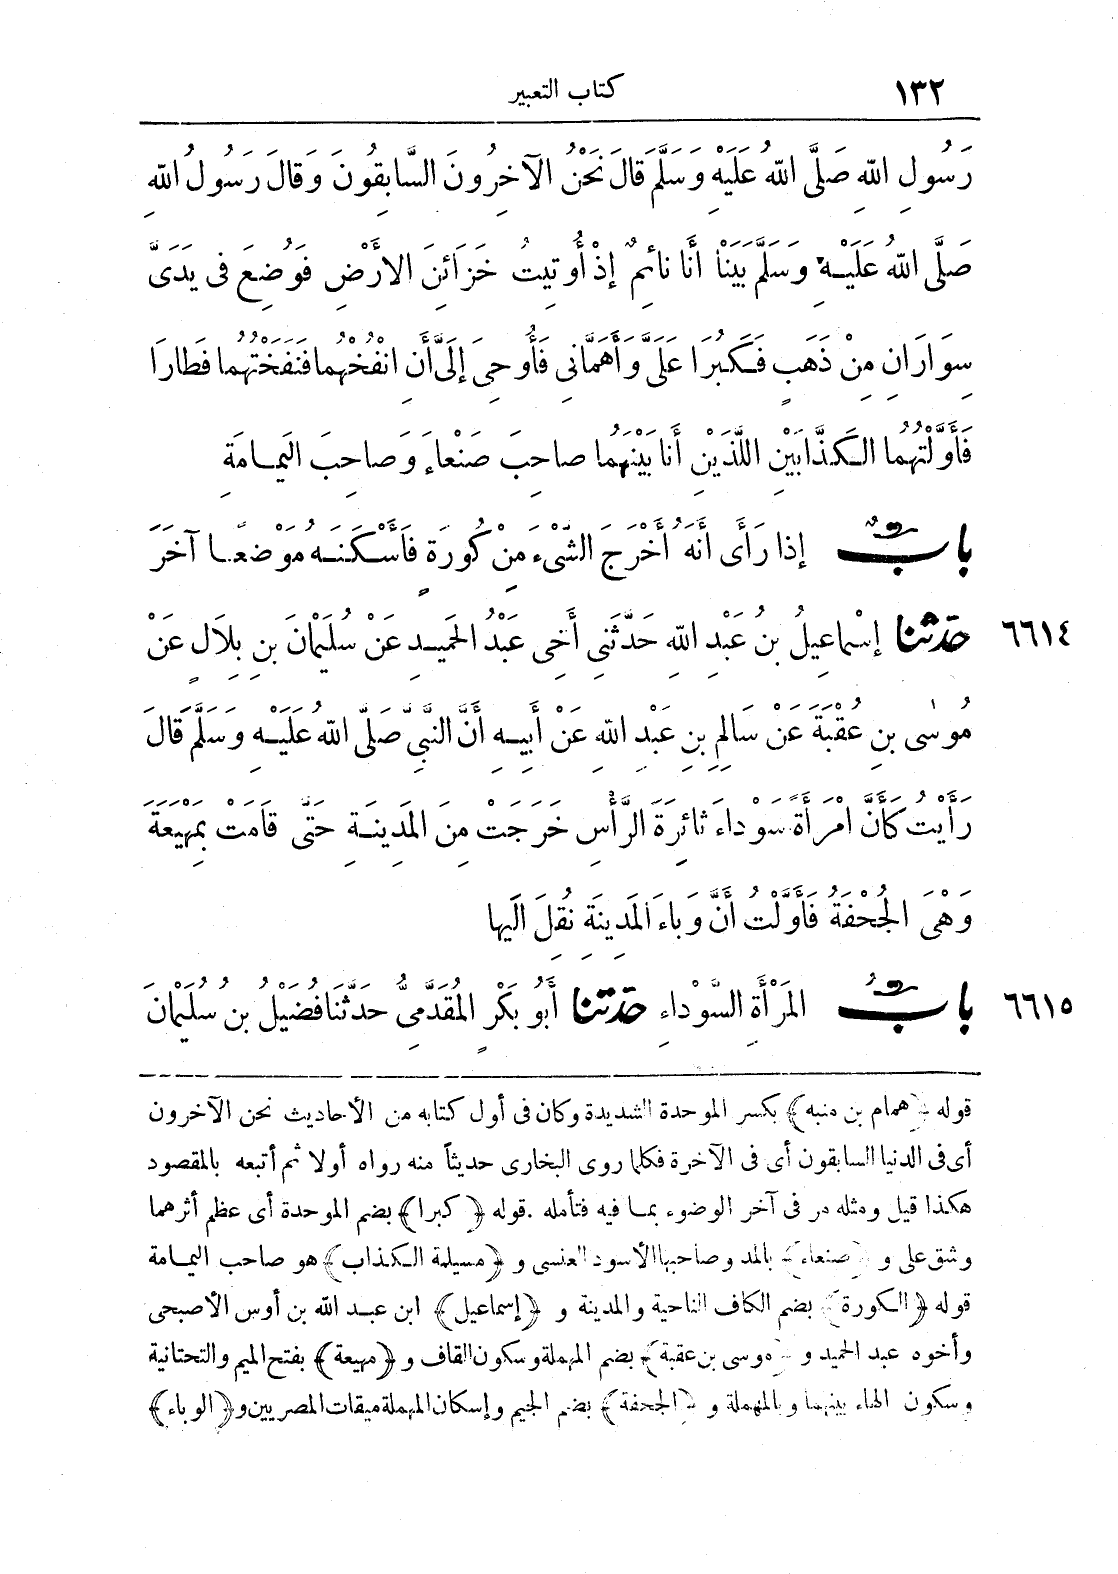 ١٣٢
كتاب التعبير
رَسُولِ اللهِ صَلَّى اللهُ عَلَيْهِ وَسَلَّمَ قَالَ نَحْنُ الآخِرُونَ السَّابِقُونَ وَقَالَ رَسُولُ اللهِ
صَلَّى اللهُ عَلَيْهِ وَسَلَّمَ بَيْنَا أَنَا نَائِمٌ إِذْ أُوتِيتُ خَزَائِنَ الأَرْضِ فَوُضِعَ فى يَدَىَّ
سِوَارَانِ مِنْ ذَهَبٍ فَكَبُرَا عَلَىَّ وَأَهَمَّانِى فَأُوحِىَ إِلَىَّ أَنِ انْفُخْهُما فَنَفَخْتُهُما فَطَارَا
فَأَوَّلْتُهُما الكَذَّابَيْنِ اللَّذَيْنِ أَنا بَيْنَهُما صاحِبَ صَنْعاءَ وَصاحِبَ اليَمامَةِ
بابٌ إذا رَأَى أَنَّهُ أَخْرَجَ الشَّىْءَ مِنْ كُورَةٍ فَأَسْكَنَهُ مَوْضِعًا آخَرَ
٦٦١٤ حدثنا إِسْماعِيلُ بنُ عَبْدِ اللهِ حَدَّثَنِى أَخِى عَبْدُ الحَمِيدِ عَنْ سُلَيْمانَ بنِ بِلَالٍ عَنْ
مُوسٰى بنِ عُقْبَةَ عَنْ سَالِمِ بنِ عَبْدِ اللهِ عَنْ أَبِيهِ أَنَّ النَّبِىَّ صَلَّى اللهُ عَلَيْهِ وَسَلَّمَ قَالَ
رَأَيْتُ كَأَنَّ امْرَأَةً سَوْدَاءَ ثائِرَةَ الرَّأْسِ خَرَجَتْ مِنَ المَدِينَةِ حَتَّى قَامَتْ بِمَهْيَعَةَ
وَهْىَ الجُحْفَةُ فَأَوَّلْتُ أَنَّ وَبَاءَ المَدِينَةِ نُقِلَ الَيها
٦٦١٥ بابُ المَرْأَةِ السَّوْداءِ حدثنا أَبُو بَكْرٍ المُقَدَّمِىُّ حَدَّثَنا فُضَيْلُ بنُ سُلَيْمانَ
قوله ﴿همام بن منبه﴾ بكسر الموحدة الشديدة وكان فى أول كتابه من الأحاديث نحن الآخرون
أى فى الدنيا السابقون أى فى الآخرة فكلما روى البخارى حديثاً منه رواه أولا ثم أتبعه بالمقصود
هكذا قيل ومثله مر فى آخر الوضوء بما فيه فتأمله . قوله ﴿كبرا﴾ بضم الموحدة أى عظم أثرهما
وشق على و ﴿صنعاء﴾ بالمد وصاحبها الأسود العنسى و ﴿مسيلمة الكذاب﴾ هو صاحب اليمامة
قوله ﴿الكورة﴾ بضم الكاف الناحية والمدينة و ﴿إسماعيل﴾ ابن عبد الله بن أوس الأصبحى
وأخوه عبد الحميد و ﴿موسى بن عقبة﴾ بضم المهملة وسكون القاف و ﴿مهيعة﴾ بفتح الميم والتحتانية
وسكون الهاء بينهما وبالمهملة و ﴿الجحفة﴾ بضم الجيم وإسكان المهملة ميقات المصريين و ﴿الوباء﴾